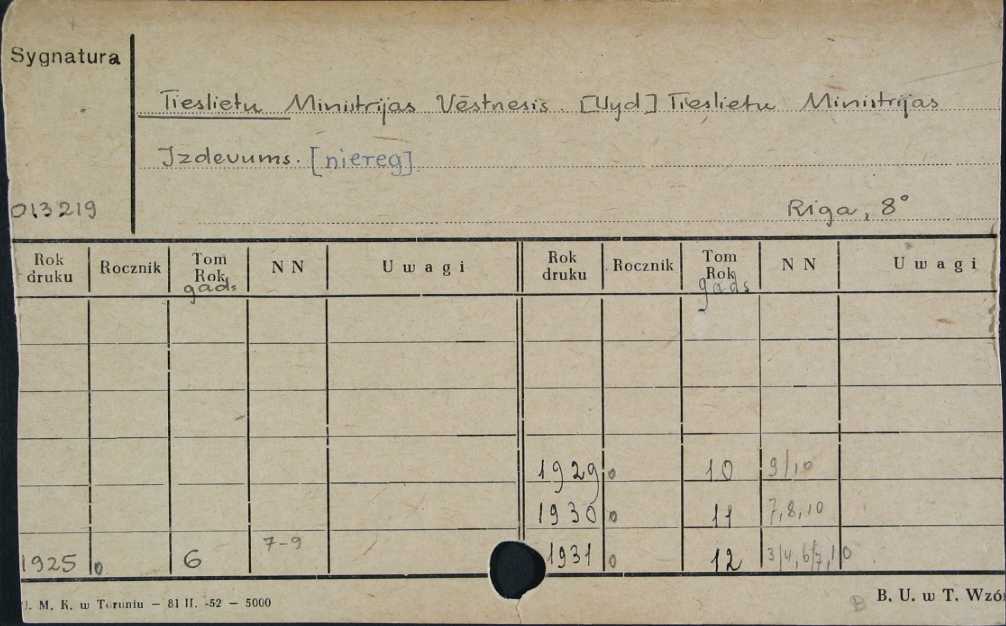 Sygnatura
Tieslietu Ministrijas Vēstnesis. [Wyd] Tieslietu Ministrijas
Izdevums. [niereg]
013219
Riga, 8°
Rok druku Rocznik Tom Rok gads N N Uwagi Rok druku Rocznik Tom Rok gads N N Uwagi
1929 o 10 9/10
1930 o 11 7,8,10
1925 o 6 7-9 1931 o 12 3/4, 6/7, 10
U. M. K. w Toruniu — 81 II. -52 — 5000
B. U. w T. Wzó